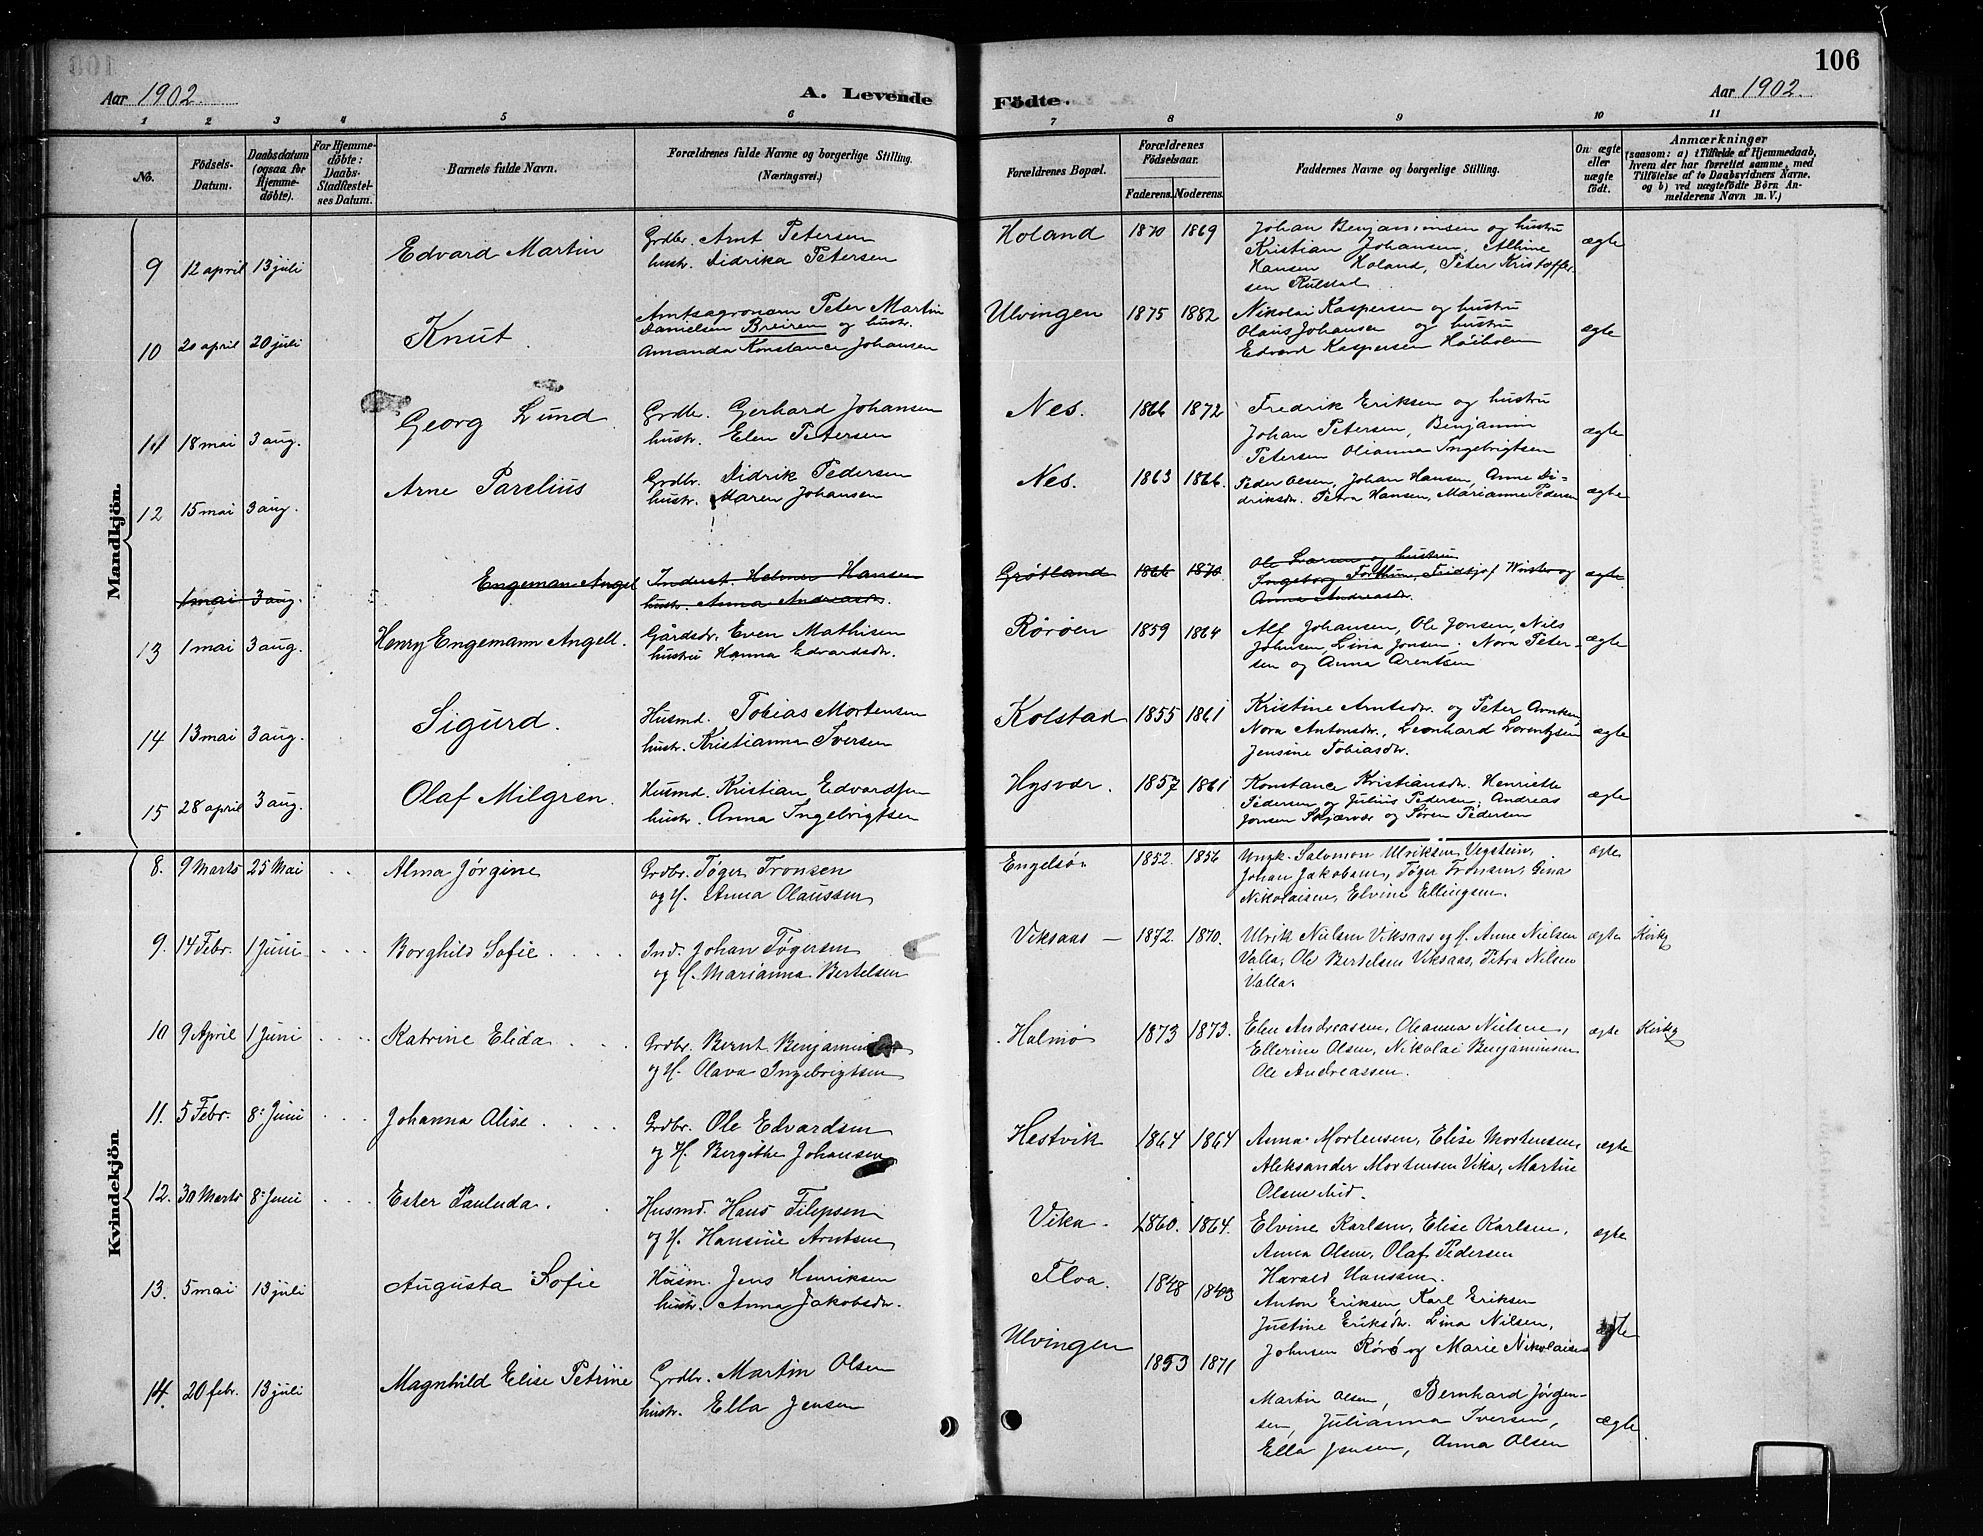 106
Aar 1902.
A. Levende
Födte.
Aar 1902.
1 2 3 4 5 6 7 8 9 10 11
No.
Födsels-
Datum.
Daabsdatum
(ogsaa for
Hjemme-
döbte).
For Hjemme-
döbte:
Daabs-
Stadfæstel-
ses Datum.
Barnets fulde Navn.
Forældrenes fulde Navne og borgerlige Stilling.
(Næringsvei.)
Forældrenes Bopæl.
Forældrenes
Födselsaar.
Faderens. Moderens.
Faddernes Navne og borgerlige Stilling.
Om ægte
eller
uægte
födt.
Anmærkninger
(saasom: a) i Tilfælde af Hjemmedaab,
hvem der har forrettet samme, med
Tilföielse af to Daabsvidners Navne.
og b) ved uægtefödte Börn An-
melderens Navn m. V.)
Mandkjön.
9 12 april 13 juli Edvard Martin Grdbr. Arnt Petersen
hustr. Didrika Petersen
Holand 1870 1869 Johan Benjaminsen og hustru
Kristian Johansen, Althine
Hansen Holand, Peter Kristoffer-
sen Rulstal
ægte
10 20 april 20 juli Knut Amtsagronom Peter Martin
Danielsen Breirem og hustr.
Amanda Konstance Johansen
Ulvingen 1875 1882 Nikolai Kaspersen og hustru
Olaus Johansen og hustru
Edvard Kaspersen Høiholm
ægte
11 18 mai 3 aug. Georg Lund Grdbr. Gerhard Johansen
hustr. Elen Petersen
Nes. 1866 1872 Fredrik Eriksen og hustru
Johan Petersen, Benjamin
Petersen Olianna Ingebrigtsen
ægte
12 15 mai 3 aug. Arne Parelius Grdbr. Didrik Pedersen
hustr. Maren Johansen
Nes. 1863 1866. Peder Olsen, Johan Hansen, Anne Di-
driksdr. Petra Hansen, Marianne Pedersen
ægte
1 mai 3 aug. Engeman Angel Inderst. Helmer Hansen
hustr. Anna Andreasdr.
Grøtland 1866 1870 Ole Larsen og hustrun
Ingeborg Forthun, Fridtjof Winther og
Anna Andreasdr.
ægte
13 1 mai 3 aug. Henry Engemann Angell. Gårdsbr. Even Mathisen
hustru Hanna Edvardsdr.
Rørøen 1859 1864 Alf Johansen, Ole Jonsen, Nils
Johnsen, Lina Jonsen, Nora Peter-
sen og Anna Arentsen
ægte
14 13 mai 3 aug. Sigurd. Husmd. Tobias Mortensen
hustr. Kristianna Iversen
Kolstad 1855 1861 Kristine Arntsdr. og Peter
Nora Antonsdr., Leonhard Lorentzen
Jensine Tobiasdr.
ægte
15 28 april 3 aug. Olaf Milgren. Husmd. Kristian Edvardsen
hustr. Anna Ingebrigtsen
Hysvær. 1857 1861 Konstance Kristiansdr. Henriette
Pedersen og Julius Pedersen, Andreas
Jonsen Skjærvær og Søren Pedersen
ægte
Kvindekjön
8. 9 Marts 25 Mai Alma Jørgine Grdbr. Tøger Tronsen
og H. Anna Olaussen
Engelsø. 1852. 1856 Ungk. Salomon Ulriksen Vegstein,
Johan Jakobsen, Tøger Tronsen, Gina
Nikolaisen, Elvine Ellingsen.
ægte
9. 14 Febr. 1 Juni Borghild Sofie Ind. Johan Tøgersen
og H. Marianna Bertelsen
Viksaas 1872. 1870. Ulrik Nielsen Viksaas og H. Anne Nielsen
Valla, Ole Bertelsen Viksaas, Petra Nilsen
Valla.
ægte Kirke
10 9 April 1 Juni Katrine Elida Grdbr. Bernt Benjaminsen
og H. Olava Ingebrigtsen
Halmø 1873 1873. Elen Andreassen, Oleanna Nielsen,
Ellerine Olsen, Nikolai Benjaminsen
Ole Andreassen.
ægte Kirke
11. 5 Febr. 8. Juni Johanna Alise Grdbr. Ole Edvardsen
og H. Bergithe Johansen
Hestvik 1864 1864 Anna Mortensen, Elise Mortensen,
Aleksander Mortensen Vika, Martin
Olsen ibid.
ægte
12. 30 Marts 8. Juni Ester Pauluda. Husmd. Hans Filipsen
og H. Hansine Arntsen
Vika. 1860. 1864. Elvine Karlsen, Elise Karlsen,
Anna Olsen, Olaf Pedersen
Harald Hanssen.
ægte
13. 5 mai 13 juli Augusta Sofie Husm. Jens Henriksen
hustr. Anna Jakobsdr.
Floa. 1848 Anton Eriksen, Karl Eriksen
Justine Eriksdr. Lina Nilsen,
Johnsen Rørø og Marie Nikolaisen
ægte
14. 20 febr. 13 juli Magnhild Elise Petrine Grdbr. Martin Olsen
hustr. Ella Jensen
Ulvingen 1853 1871
Martin Olsen, Bernhard Jørgen-
sen, Julianna Iversen,
Ella Jensen, Anna Olsen
ægte